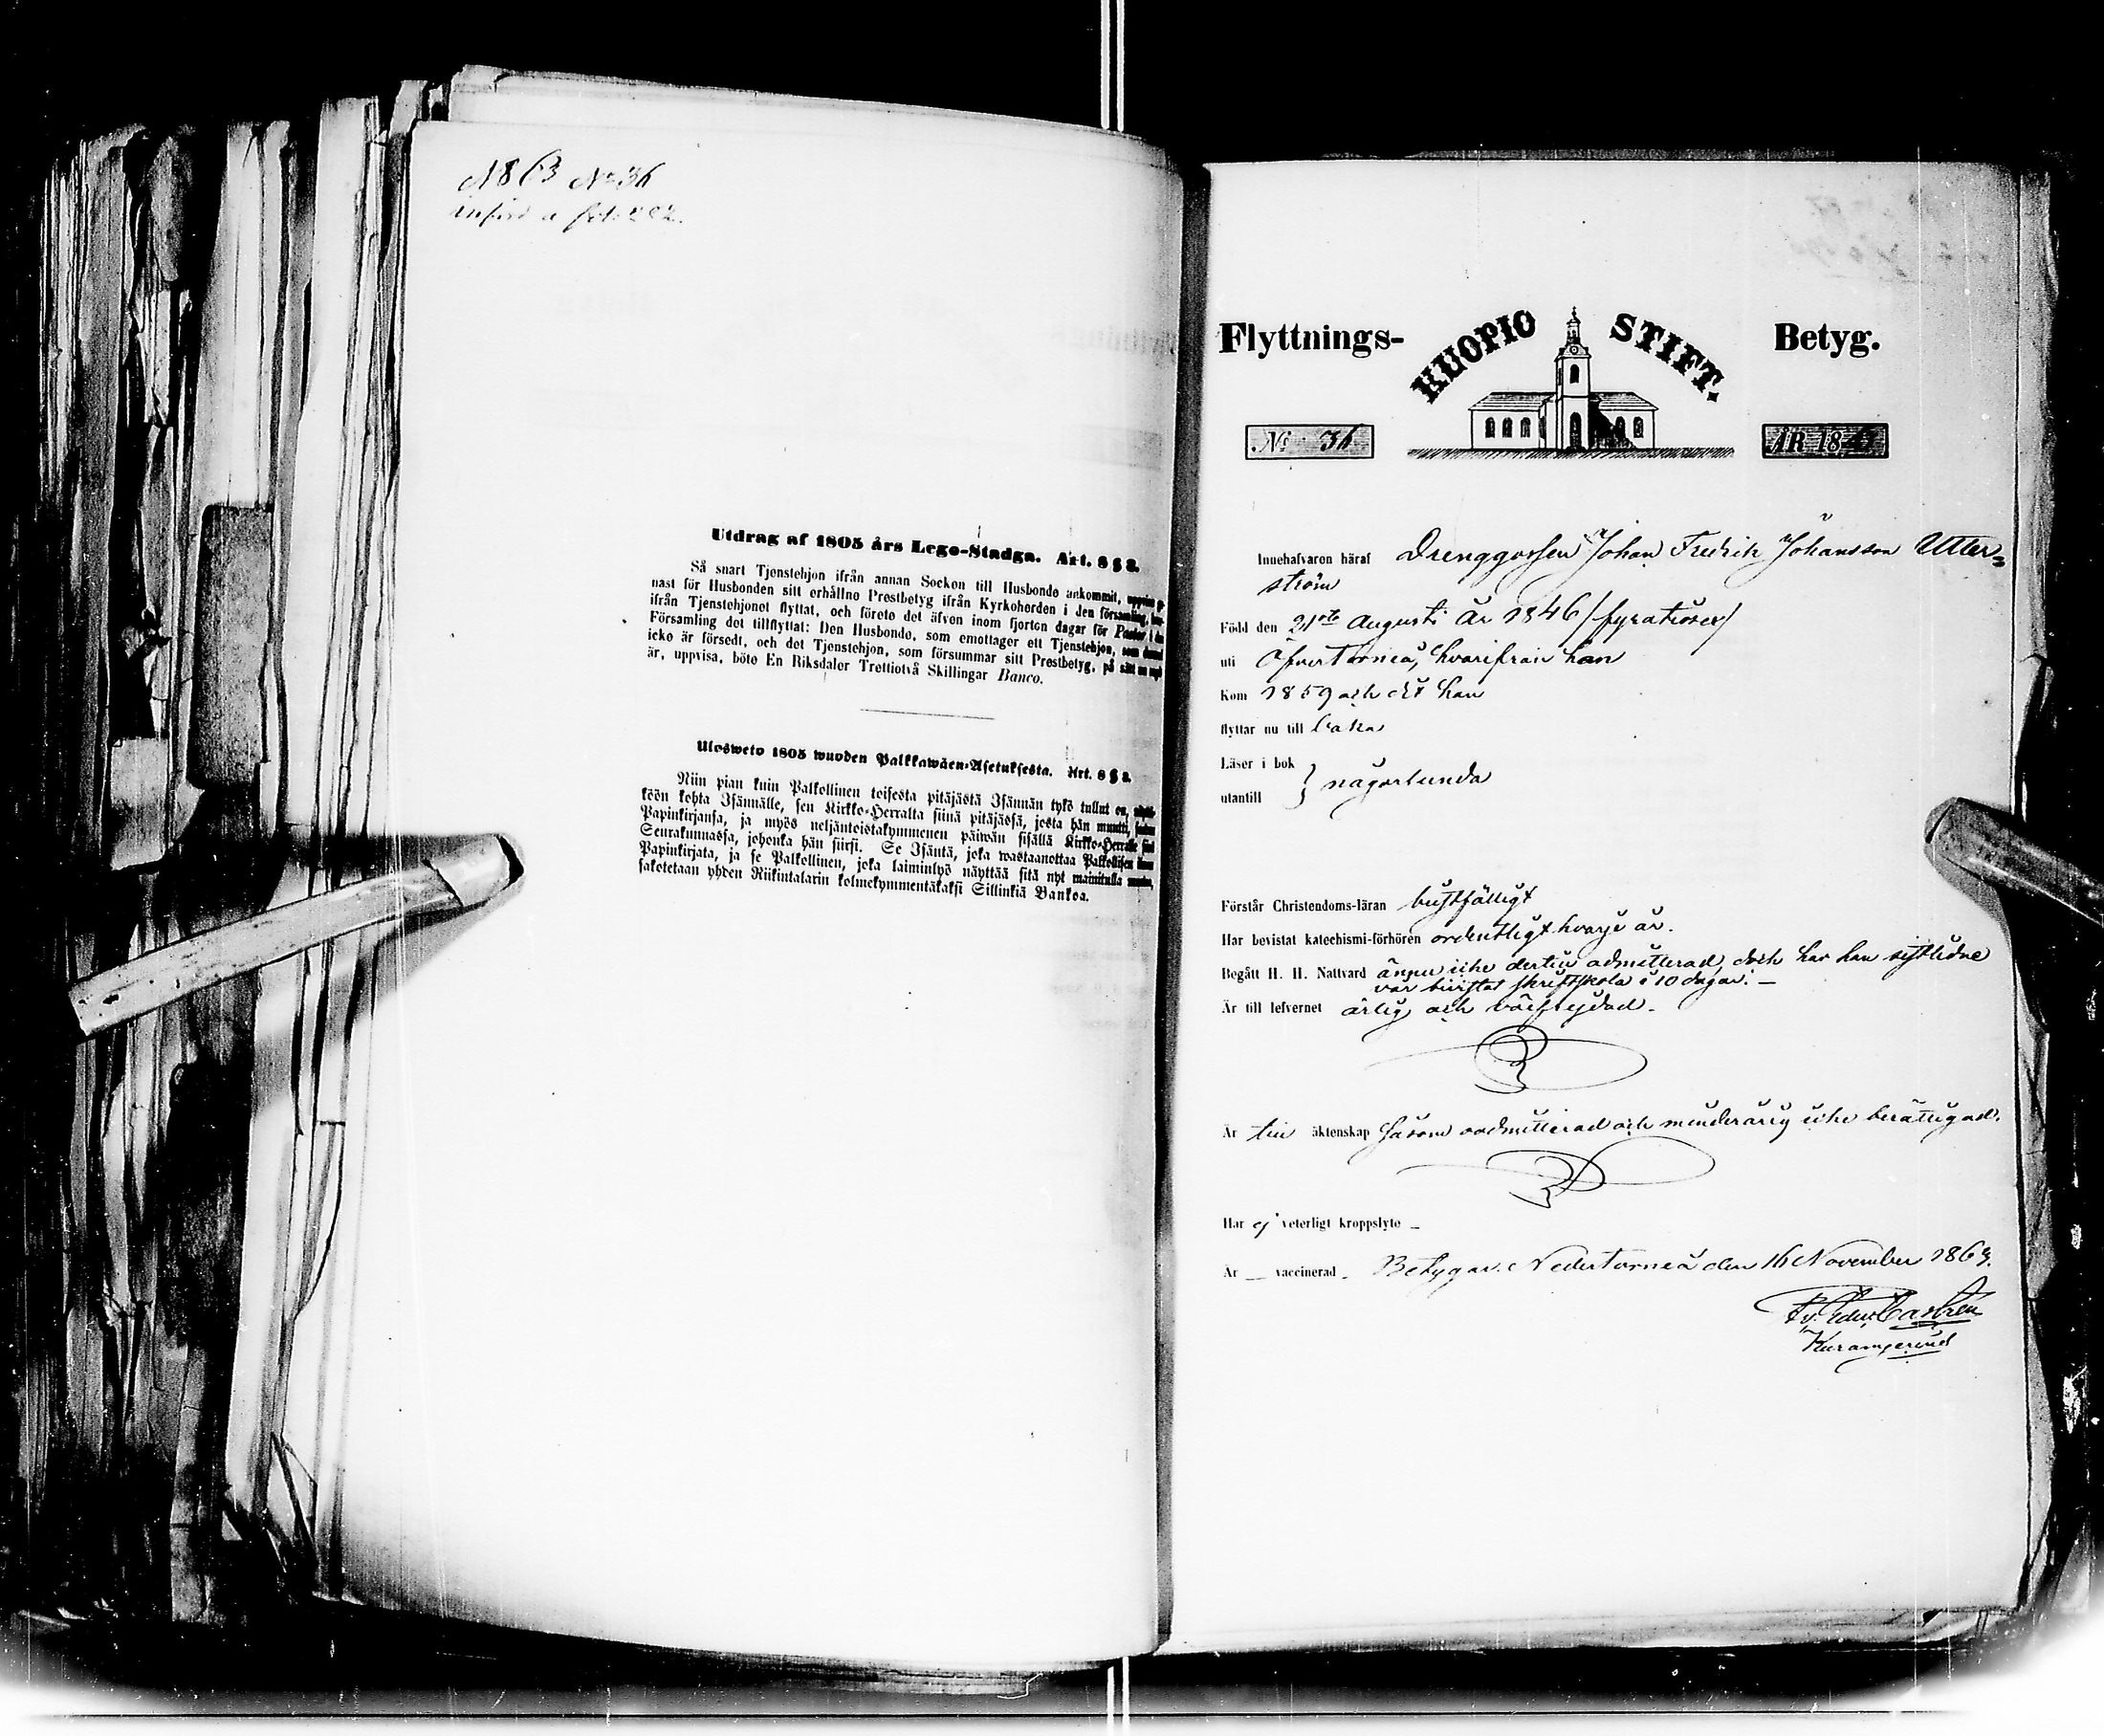 1863 No 36
införd a fol: 282.
Utdrag af 1805 års Lego-Stadga. Art. 8 § 2.
Så snart Tjenstehjon ifrån annan Socken till Husbonde ankommit, uppvise
nast för Husbonden sitt erhållne Prestbetyg ifrån Kyrkoherden i den församling,
ifrån Tjenstehjonet flyttat, och förete det äfven inom fjorton dagar för Pastor i den
Församling det tillflyttat: Den Husbonde, som emottager ett Tjenstehjon, som
icke är försedt, och det Tjenstehjon, som försummar sitt Prestbetyg, på sätt
är, uppvisa, böte En Riksdaler Trettiotvå Skillingar Banco.
Ulosweto 1805 wuoden Palkkawäen-Asetuksesta. Art. 8 § 2.
Niin pian kuin Palkollinen toisesta pitäjästä Isännän tykö tullut on,
köön kohta Isännälle, sen Kirkko-Herralta siinä pitäjässä, josta hän muutti,
Papinkirjansa, ja myös neljäntoistakymmenen päiwän sisällä Kirkko-Herralle
Seurakunnassa, johonka hän siirsi. Se Isäntä, joka wastaanottaa Palkollisen ilman
Papinkirjata, ja se Palkollinen, joka laiminlyö näyttää sitä nyt mainitulla
sakotetaan yhden Riikintalarin kolmekymmentäkaksi Sillinkiä Bankoa.
Flyttnings- KUOPIO STIFT. Betyg.
No 36. ÅR 1863
Innehafvaren häraf Drenggossen Johan Fredrik Johansson Utter=
ström
Född den 21ste Augusti År 1846 /fyratiosex/
uti ÖfverTorneå, hvarifrån han
Kom 1859 och dit han
flyttar nu till baka
Läser i bok
utantill } någorlunda
Förstår Christendoms-läran bristfälligt
Har bevistat katechismi-förhören ordentligt hvarje år.
Begått H. H. Nattvard ännu icke dertill admitterad, dock har han sistlidne
vår bivistat skriftskola i 10 dagar. —
Är till lefvernet ärlig och välfrejdad.
Är till äktenskap såsom oadmitterad och minderårig icke berättigad.
Har ej veterligt kroppslyte —
Är — vaccinerad. Betygar. NederTorneå den 16 November 1863.
Castrén